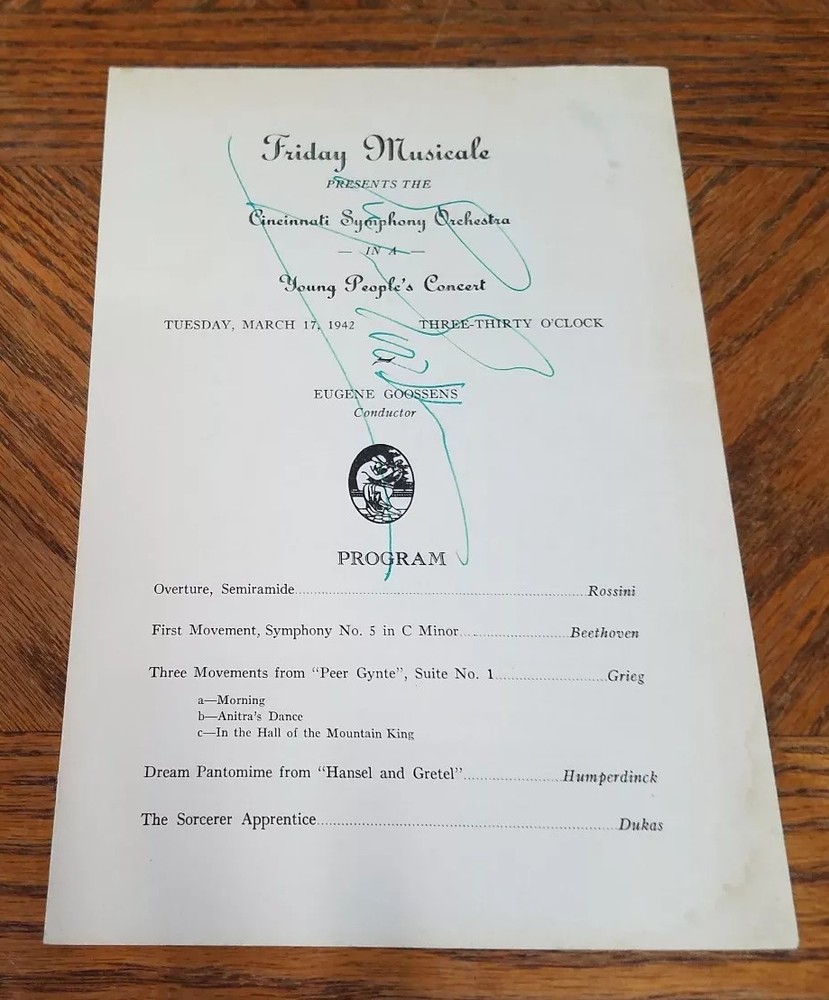 Friday Musicale
PRESENTS THE
Cincinnati Symphony Orchestra
— IN A —
Young People's Concert
TUESDAY, MARCH 17, 1942 THREE-THIRTY O'CLOCK
EUGENE GOOSSENS
Conductor
PROGRAM
Overture, Semiramide....................Rossini
First Movement, Symphony No. 5 in C Minor....................Beethoven
Three Movements from "Peer Gynte", Suite No. 1....................Grieg
a—Morning
b—Anitra's Dance
c—In the Hall of the Mountain King
Dream Pantomime from "Hansel and Gretel"....................Humperdinck
The Sorcerer Apprentice....................Dukas